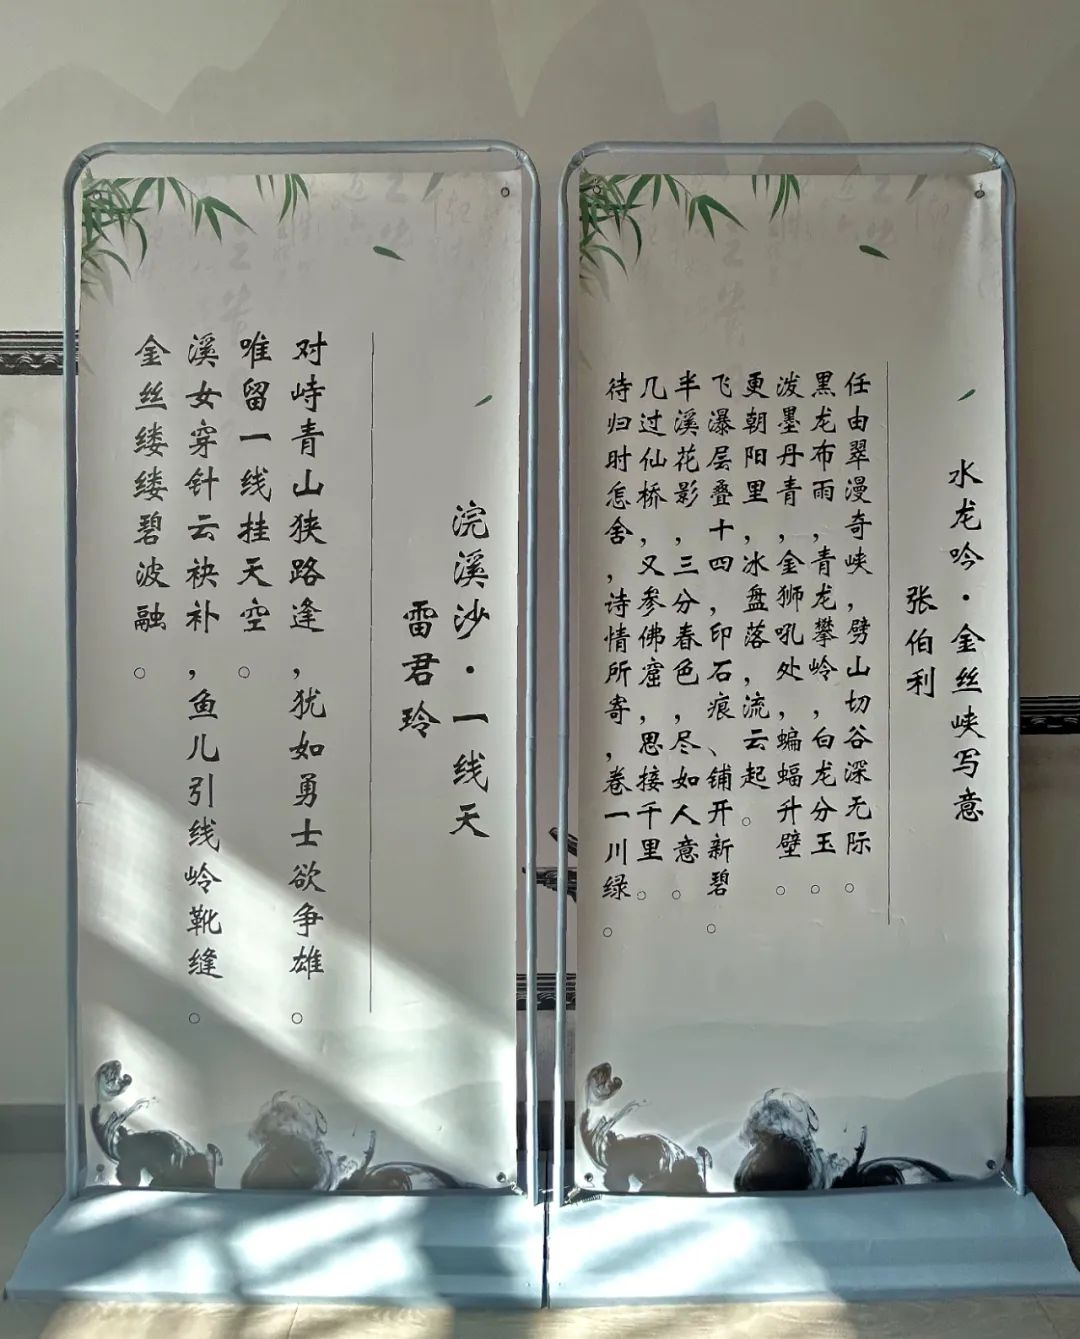 水龙吟·金丝峡写意
张伯利
任由翠漫奇峡，劈山切谷深无际。
黑龙布雨，青龙攀岭，白龙分玉。
泼墨丹青，金狮吼处，蝙蝠升壁。
更朝阳里，冰盘落，流云起。
飞瀑层叠十四，印石痕、铺开新碧。
半溪花影，三分春色，尽如人意。
几过仙桥，又参佛窟，思接千里。
待归时怎舍，诗情所寄，卷一川绿。
浣溪沙·一线天
雷君玲
对峙青山狭路逢，犹如勇士欲争雄。
唯留一线挂天空。
溪女穿针云袂补，鱼儿引线岭靴缝。
金丝缕缕碧波融。